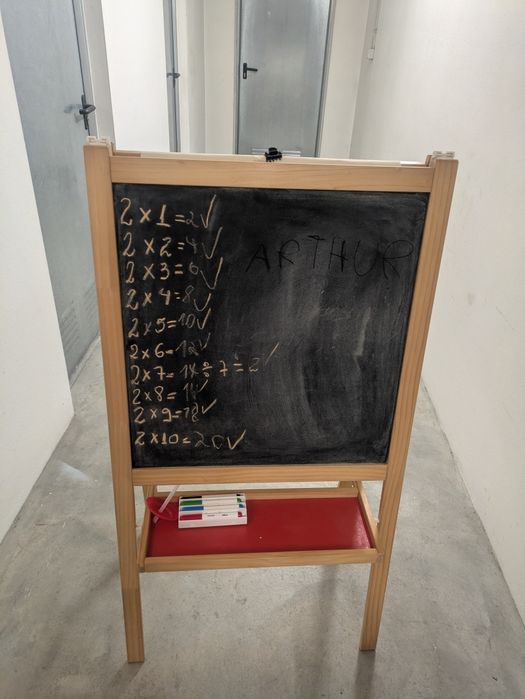 2 × 1 = 2 ✓
2 × 2 = 4 ✓
2 × 3 = 6 ✓
2 × 4 = 8 ✓
2 × 5 = 10 ✓
2 × 6 = 12 ✓
2 × 7 = 14 ÷ 7 = 2 ✓
2 × 8 = ✓
2 × 9 = 18 ✓
2 × 10 = 20 ✓
ARTHUR